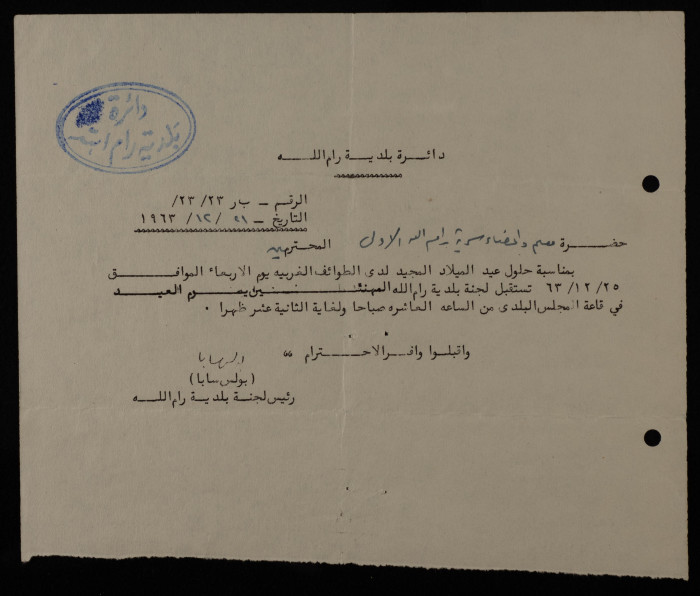 دائرة
بلدية رام الله
دائرة بلدية رام الله
الرقم – ب ر /٢٣/ ٢٣/
التاريخ – ٢١ /١٢/ ١٩٦٣
حضرة معلم واعضاء سرية رام الله الاولى المحترمين
بمناسبة حلول عيد الميلاد المجيد لدى الطوائف الغربيه يوم الاربعاء الموافق
٦٣/١٢/٢٥ تستقبل لجنة بلدية رام الله المهنئين يوم العيد
في قاعة المجلس البلدى من الساعه العاشره صباحا ولغاية الثانية عشر ظهرا .
واقبلوا وافر الاحترام ،،
(بولس سابا)
رئيس لجنة بلدية رام الله